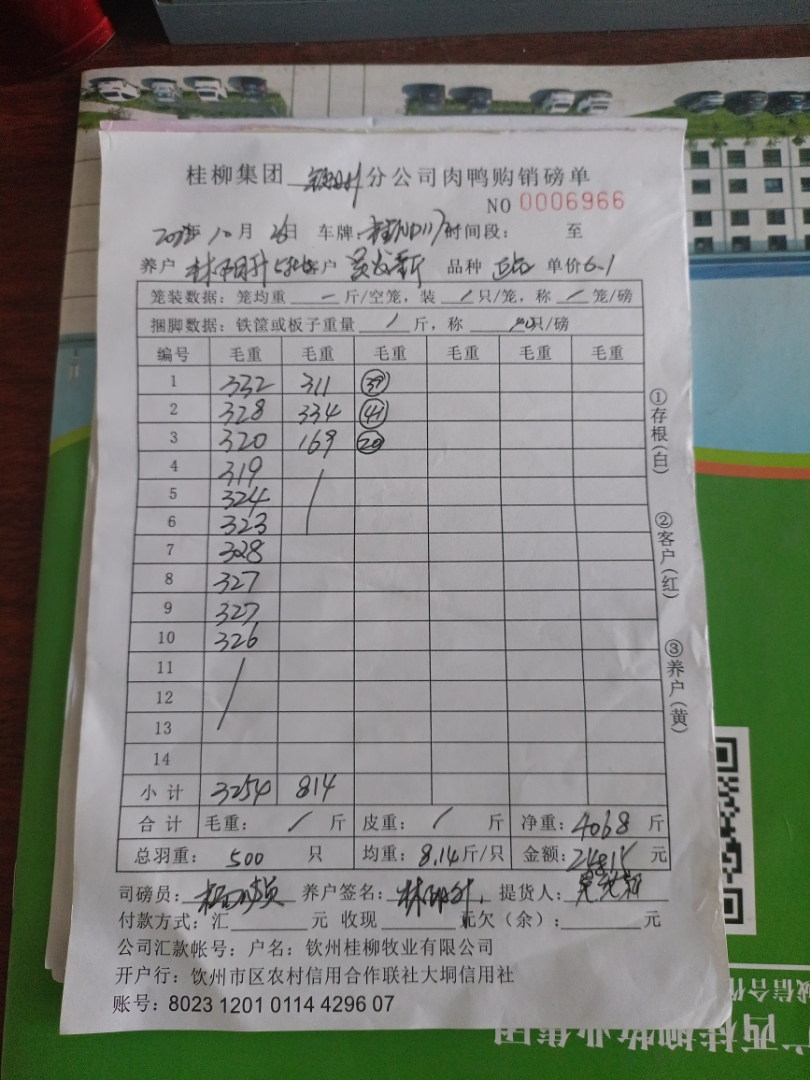 桂柳集团 钦州 分公司肉鸭购销磅单
NO 0006966
10月26日 车牌: 时间段: 至
养户 林阳升 客户 品种 单价6.1
笼装数据: 笼均重 — 斤/空笼, 装 / 只/笼, 称 / 笼/磅
捆脚数据: 铁筐或板子重量 / 斤, 称 只/磅
编号 毛重 毛重 毛重 毛重 毛重 毛重
1 332 311 39
2 328 334 41
3 320 169 20
4 319
5 324
6 323
7 328
8 327
9 327
10 326
11
12
13
14
小计 3254 814
合计 毛重: / 斤 皮重: / 斤 净重: 4068 斤
总羽重: 500 只 均重: 8.14斤/只 金额: 24815 元
司磅员: 养户签名: 林阳升 提货人:
付款方式: 汇 元 收现 元欠(余): 元
公司汇款帐号: 户名: 钦州桂柳牧业有限公司
开户行: 钦州市区农村信用合作联社大垌信用社
账号: 8023 1201 0114 4296 07
①存根(白)
②客户(红)
③养户(黄)
诚信合作
广西桂柳牧业集团